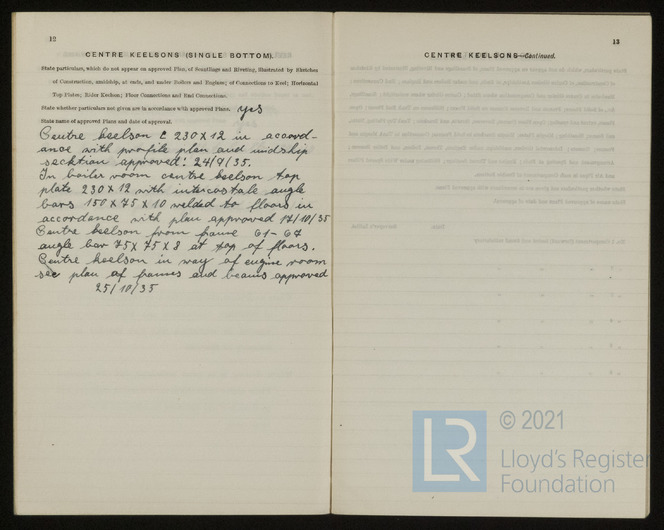 12
CENTRE KEELSONS (SINGLE BOTTOM).
State particulars, which do not appear on approved Plan, of Scantlings and Riveting, illustrated by Sketches
of Construction, amidship, at ends, and under Boilers and Engines; of Connections to Keel; Horizontal
Top Plates; Rider Keelson; Floor Connections and End Connections.
State whether particulars not given are in accordance with approved Plans. yes
State name of approved Plans and date of approval.
Centre keelson [ 230 x 12 in accord-
ance with profile plan and midship
secktion approved: 24/9/35.
In boiler room centre keelson top
plate 230 x 12 with intercostale angle
bars 150 x 75 x 10 welded to floors in
accordance with plan approved 17/10/35
Centre keelson from frame 61 - 67
angle bar 75 x 75 x 8 at top of floors.
Centre keelson in way of engine room
see plan of frames and beams approved
25/10/35
13
CENTRE KEELSONS—Continued.
LR
© 2021
Lloyd's Register
Foundation